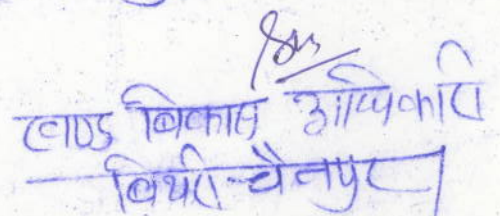 खण्ड विकास अधिकारी
बिथरी-चैनपुर